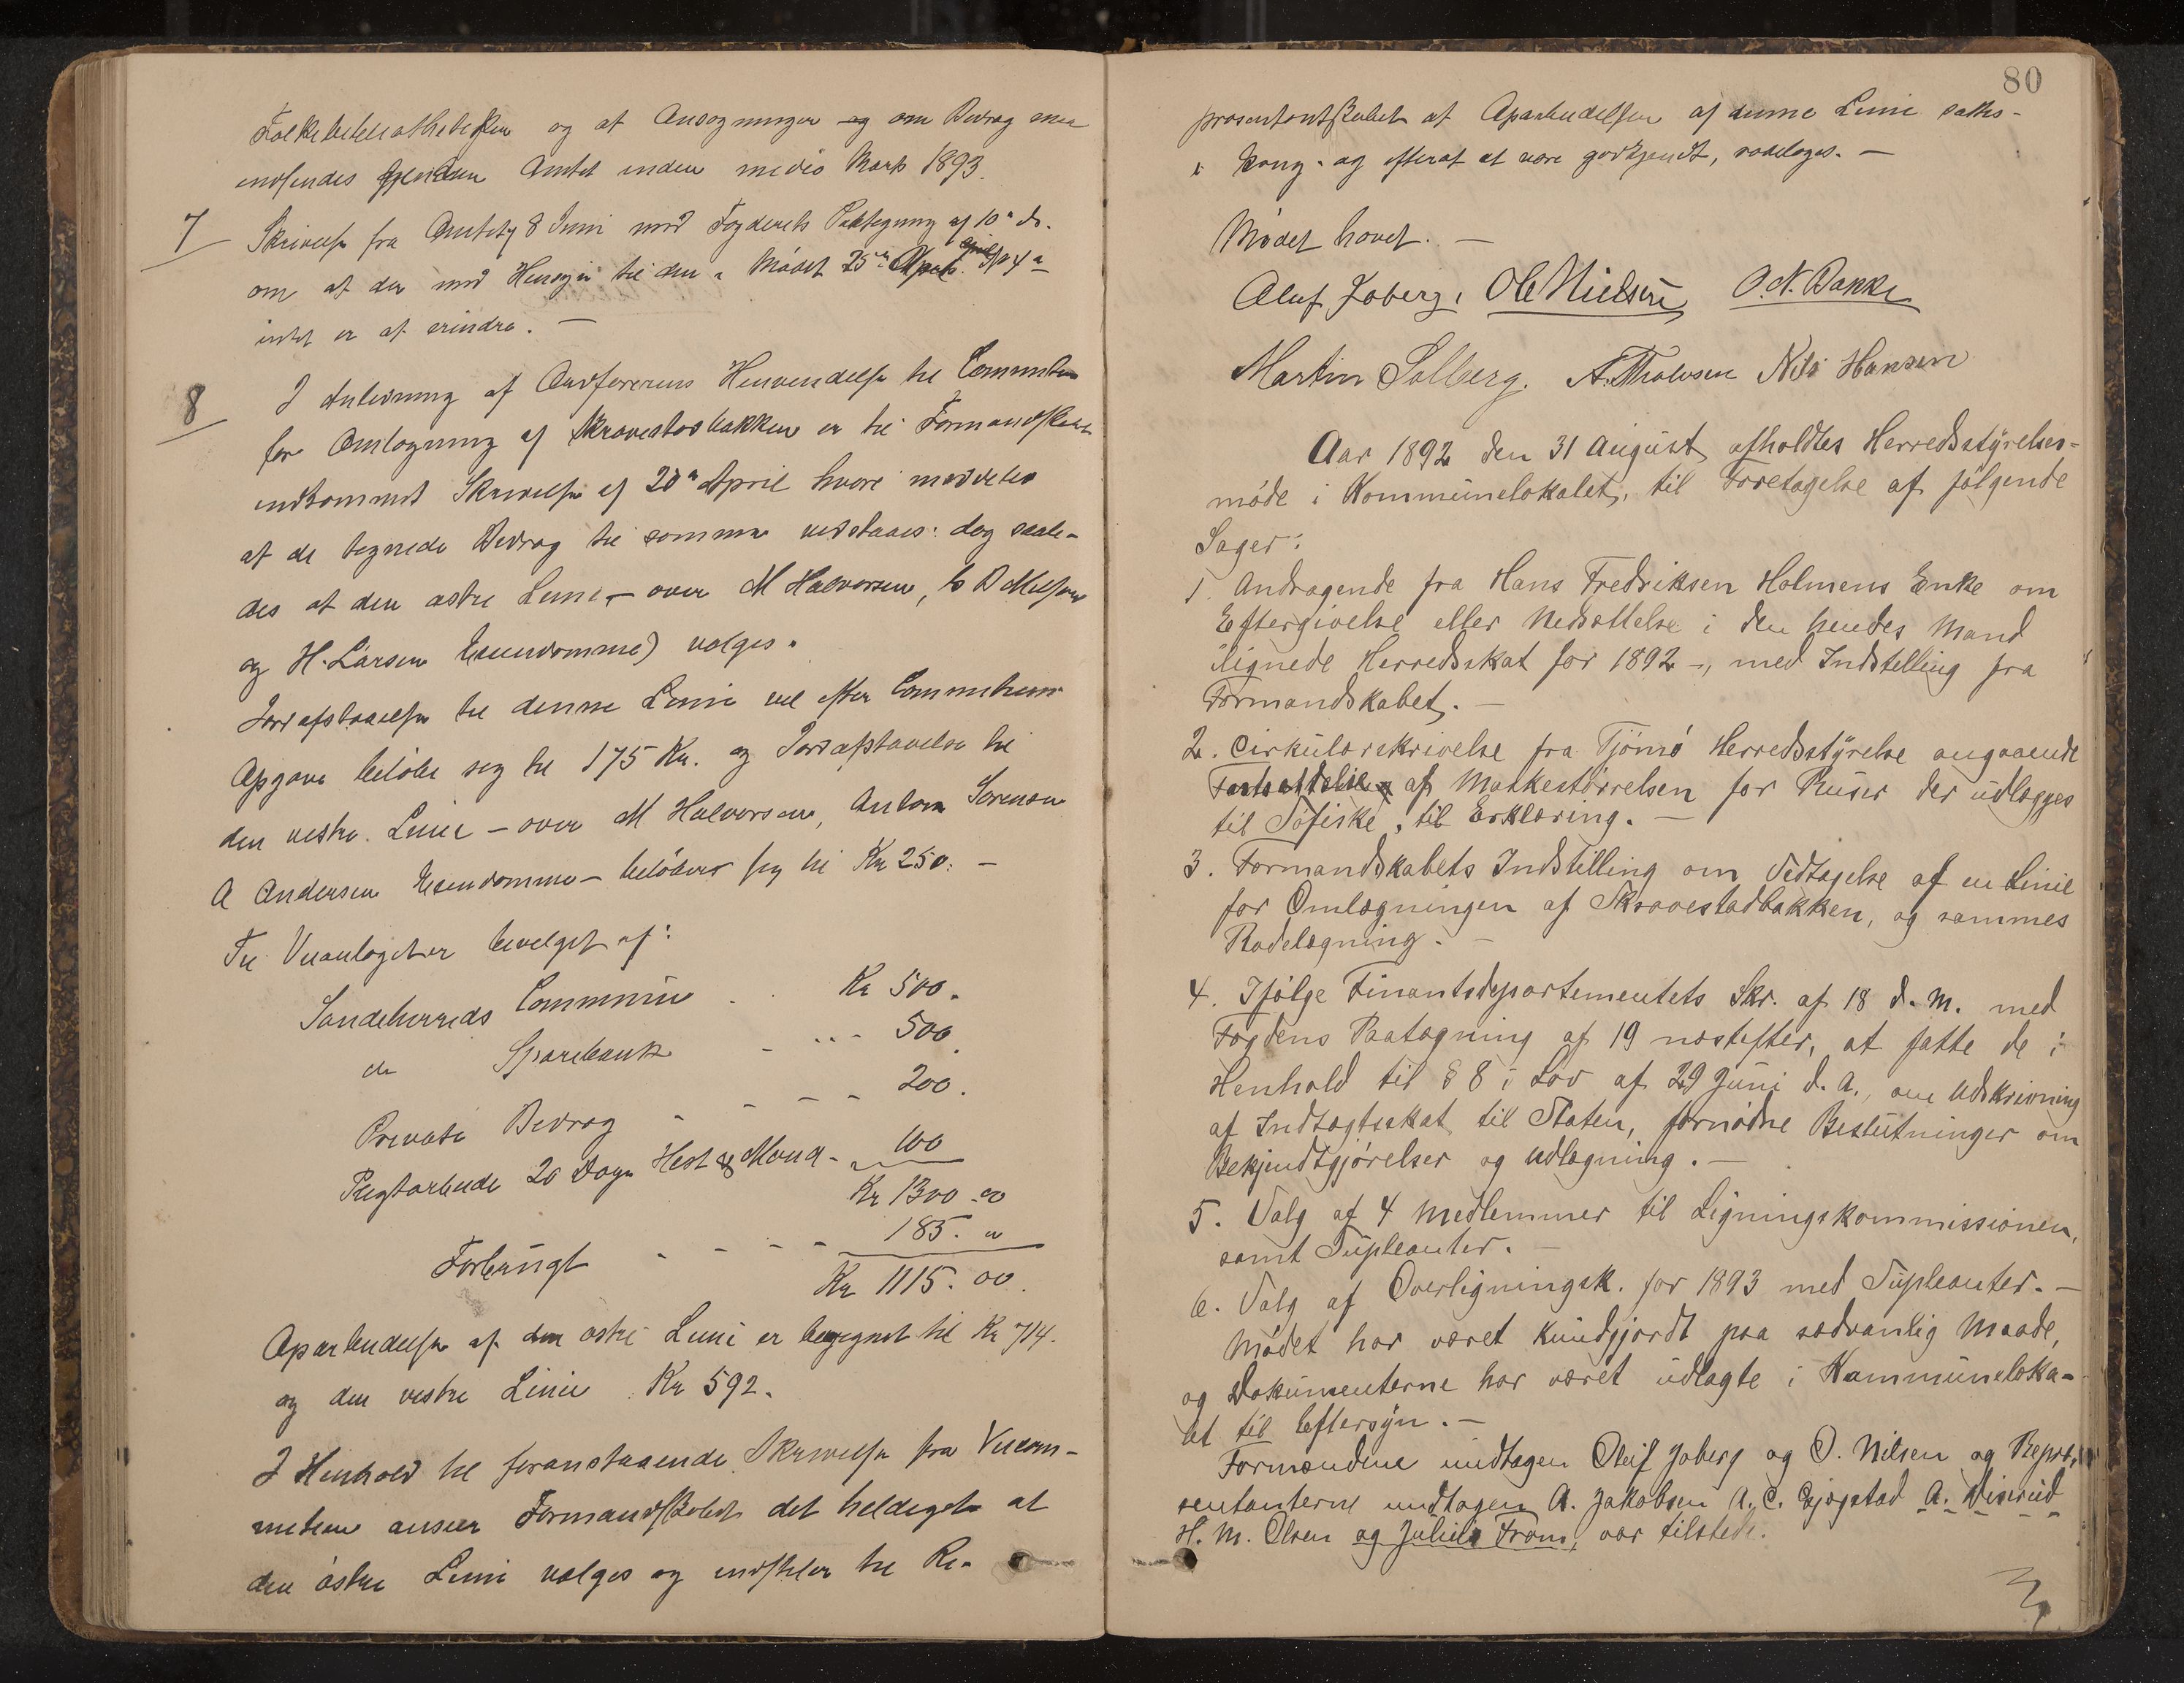 Folkebibliotheket og at Ansøgninger og om Bidrag maa
indsendes Amtet inden medio Marts 1893.
7 Skrivelse fra Amtet af 8 Juni med Fogderiets Paategning af 10 ds.
om at der med Hensyn til den i Mødet 25de April
intet er at erindre. —
8 I Anledning af Henvendelse til Communen
for Omlægning af Skravestadbakken er til Formandskabet
indkommet Skrivelse af 20 April hvori meddeles
at de tegnede Bidrag til samme vedstaaes: dog saale-
des at den østre Linie, — over M Halvorsen,
og H. Larsens Eiendomme) vælges.
Jordafstaaelse til denne Linie vil efter
Opgave beløbe sig til 175 Kr. og Jordafstaaelse til
den vestre Linie — over M Halvorsens, Anton Sørensen
A Andersens Eiendomme — beløber sig til Kr 250. —
Til Veianlæget er bevilget af:
Sandeherreds Commune . . Kr 500.
do Sparebank - . . - 500.
Private Bidrag - - - - 200.
Pligtarbeide 20 Dage Hest & Mand - 100
Kr 1300.00
Forbrugt - - - - 185. "
Kr 1115.00.
Oparbeidelse af den østre Linie er beregnet til Kr 714.
og den vestre Linie Kr 592.
I Henhold til foranstaaende Skrivelse fra Veicom-
anser Formandskabet det heldigst at
den østre Linie vælges og indstiller til Re-
80
præsentantskabet at Oparbeidelsen af denne Linie sættes
i Gang og efterat at være godkjendt, rodelægges. —
Mødet hævet. —
Oluf Joberg, Ole Nielsen, O. N. Bakke
Martin Solberg. A. Tholvsen Nils Hansen
Aar 1892 den 31 August afholdtes Herredsstyrelses-
møde i Kommunelokalet, til Foretagelse af følgende
Sager:
1. Andragende fra Hans Fredriksen Holmens Enke om
Eftergivelse eller Nedsættelse i den hendes Mand
ilignede Herredsskat for 1892 —, med Indstilling fra
Formandskabet. —
2. Cirkulærskrivelse fra Tjömö Herredsstyrelse angaaende
Fastsættelse af Maskestørrelsen for Ruser der udlægges
til Søfiske, til Erklæring. —
3. Formandskabets Indstilling om Vedtagelse af en Linie
for Omlægningen af Skravestadbakken, og sammes
Rodelægning. —
4. Ifølge Finantsdepartementets Skr. af 18 d. M. med
Fogdens Paategning af 19 næstefter, at fatte de i
Henhold til § 8 i Lov af 29 Juni d. A., om Udskrivning
af Indtægtsskat til Staten, fornødne Beslutninger om
Bekjendtgjørelser og Udlægning. —
5. Valg af 4 Medlemmer til Ligningskommissionen,
samt Supleanter. —
6. Valg af Overligningsk. for 1893 med Supleanter. —
Mødet har været kundgjordt paa sædvanlig Maade,
og Dokumenterne har været udlagte i Kommuneloka-
let til Eftersyn. —
Formændene undtagen Oluf Joberg og O. Nilsen og Repræ-
sentanterne undtagen A. Jakobsen A. C. Gjøgstad A. Virurud
H. M. Olsen og Julius Fram, var tilstede.